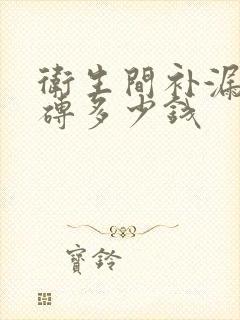 衛生間补漏
磚多少钱
寶鈴